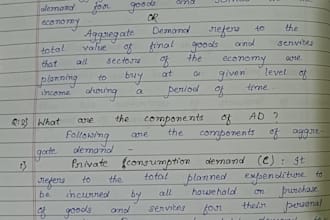 demand for goods and services in the
economy
OR
Aggregate Demand refers to the
total value of final goods and services
that all sectors of the economy are
planning to buy at a given level of
income during a period of time.
Q12) What are the components of AD ?
Following are the components of aggre-
gate demand -
1) Private consumption demand (C) : It
refers to the total planned expenditure to
be incurred by all household on purchase
of goods and services for their personal